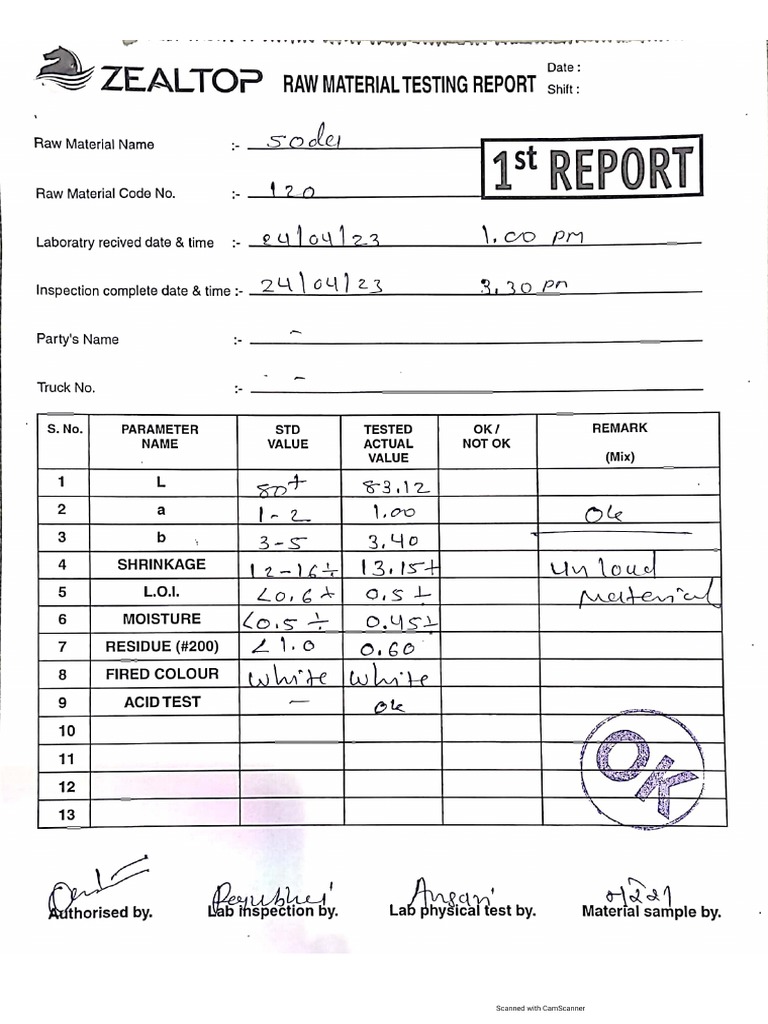 ZEALTOP RAW MATERIAL TESTING REPORT Date :
Shift :
Raw Material Name :- Soda
1st REPORT
Raw Material Code No. :- 120
Laboratry recived date & time :- 24/04/23 1.00 pm
Inspection complete date & time :- 24/04/23 3.30 pm
Party's Name :- -
Truck No. :- -
S. No. PARAMETER NAME STD VALUE TESTED ACTUAL VALUE OK / NOT OK REMARK (Mix)
1 L 80+ 83.12
2 a 1-2 1.00 Ok
3 b 3-5 3.40
4 SHRINKAGE 12-16% 13.15% Unload
5 L.O.I. <0.6% 0.5% Material
6 MOISTURE <0.5% 0.45%
7 RESIDUE (#200) <1.0 0.60
8 FIRED COLOUR White White
9 ACID TEST - Ok
10
11
12
13
OK
Ansari
Authorised by. Lab inspection by. Lab physical test by. Material sample by.
Scanned with CamScanner